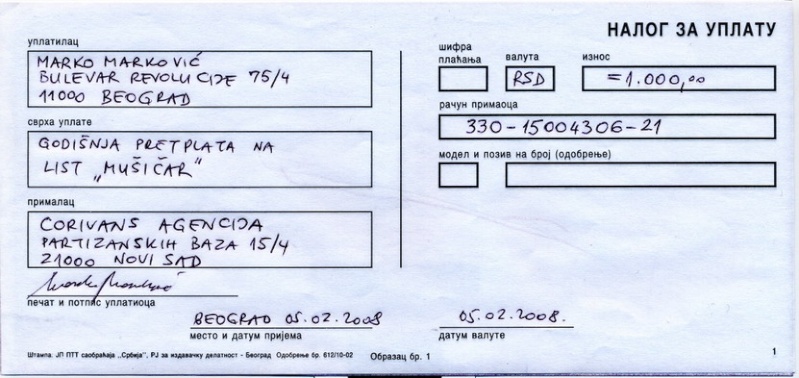 НАЛОГ ЗА УПЛАТУ
уплатилац
MARKO MARKOVIĆ
BULEVAR REVOLUCIJE 75/4
11000 BEOGRAD
сврха уплате
GODIŠNJA PRETPLATA NA
LIST „MUŠIČAR"
прималац
CORIVANS AGENCIJA
PARTIZANSKIH BAZA 15/4
21000 NOVI SAD
печат и потпис уплатиоца
BEOGRAD 05.02.2008
место и датум пријема
шифра плаћања
валута
RSD
износ
=1.000,00
рачун примаоца
330-15004306-21
модел и позив на број (одобрење)
05.02.2008.
датум валуте
Штампа. ЈП ПТТ саобраћаја „Србија", РЈ за издавачку делатност - Београд Одобрење бр. 612/10-02
Образац бр. 1
1